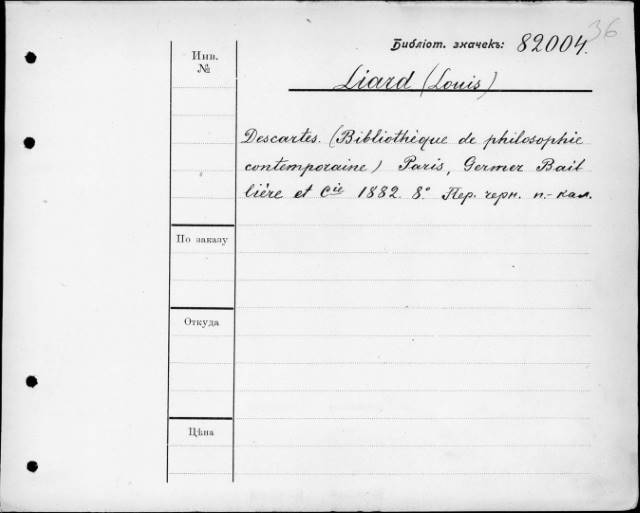 36
Библіот. значекъ: 82004.
Инв.
№
Liard (Louis)
Descartes. (Bibliothèque de philosophie
contemporaine) Paris, Germer Bail
lière et Cie 1882. 8º. Пер. черн. п.-кал.
По заказу
Откуда
Цѣна